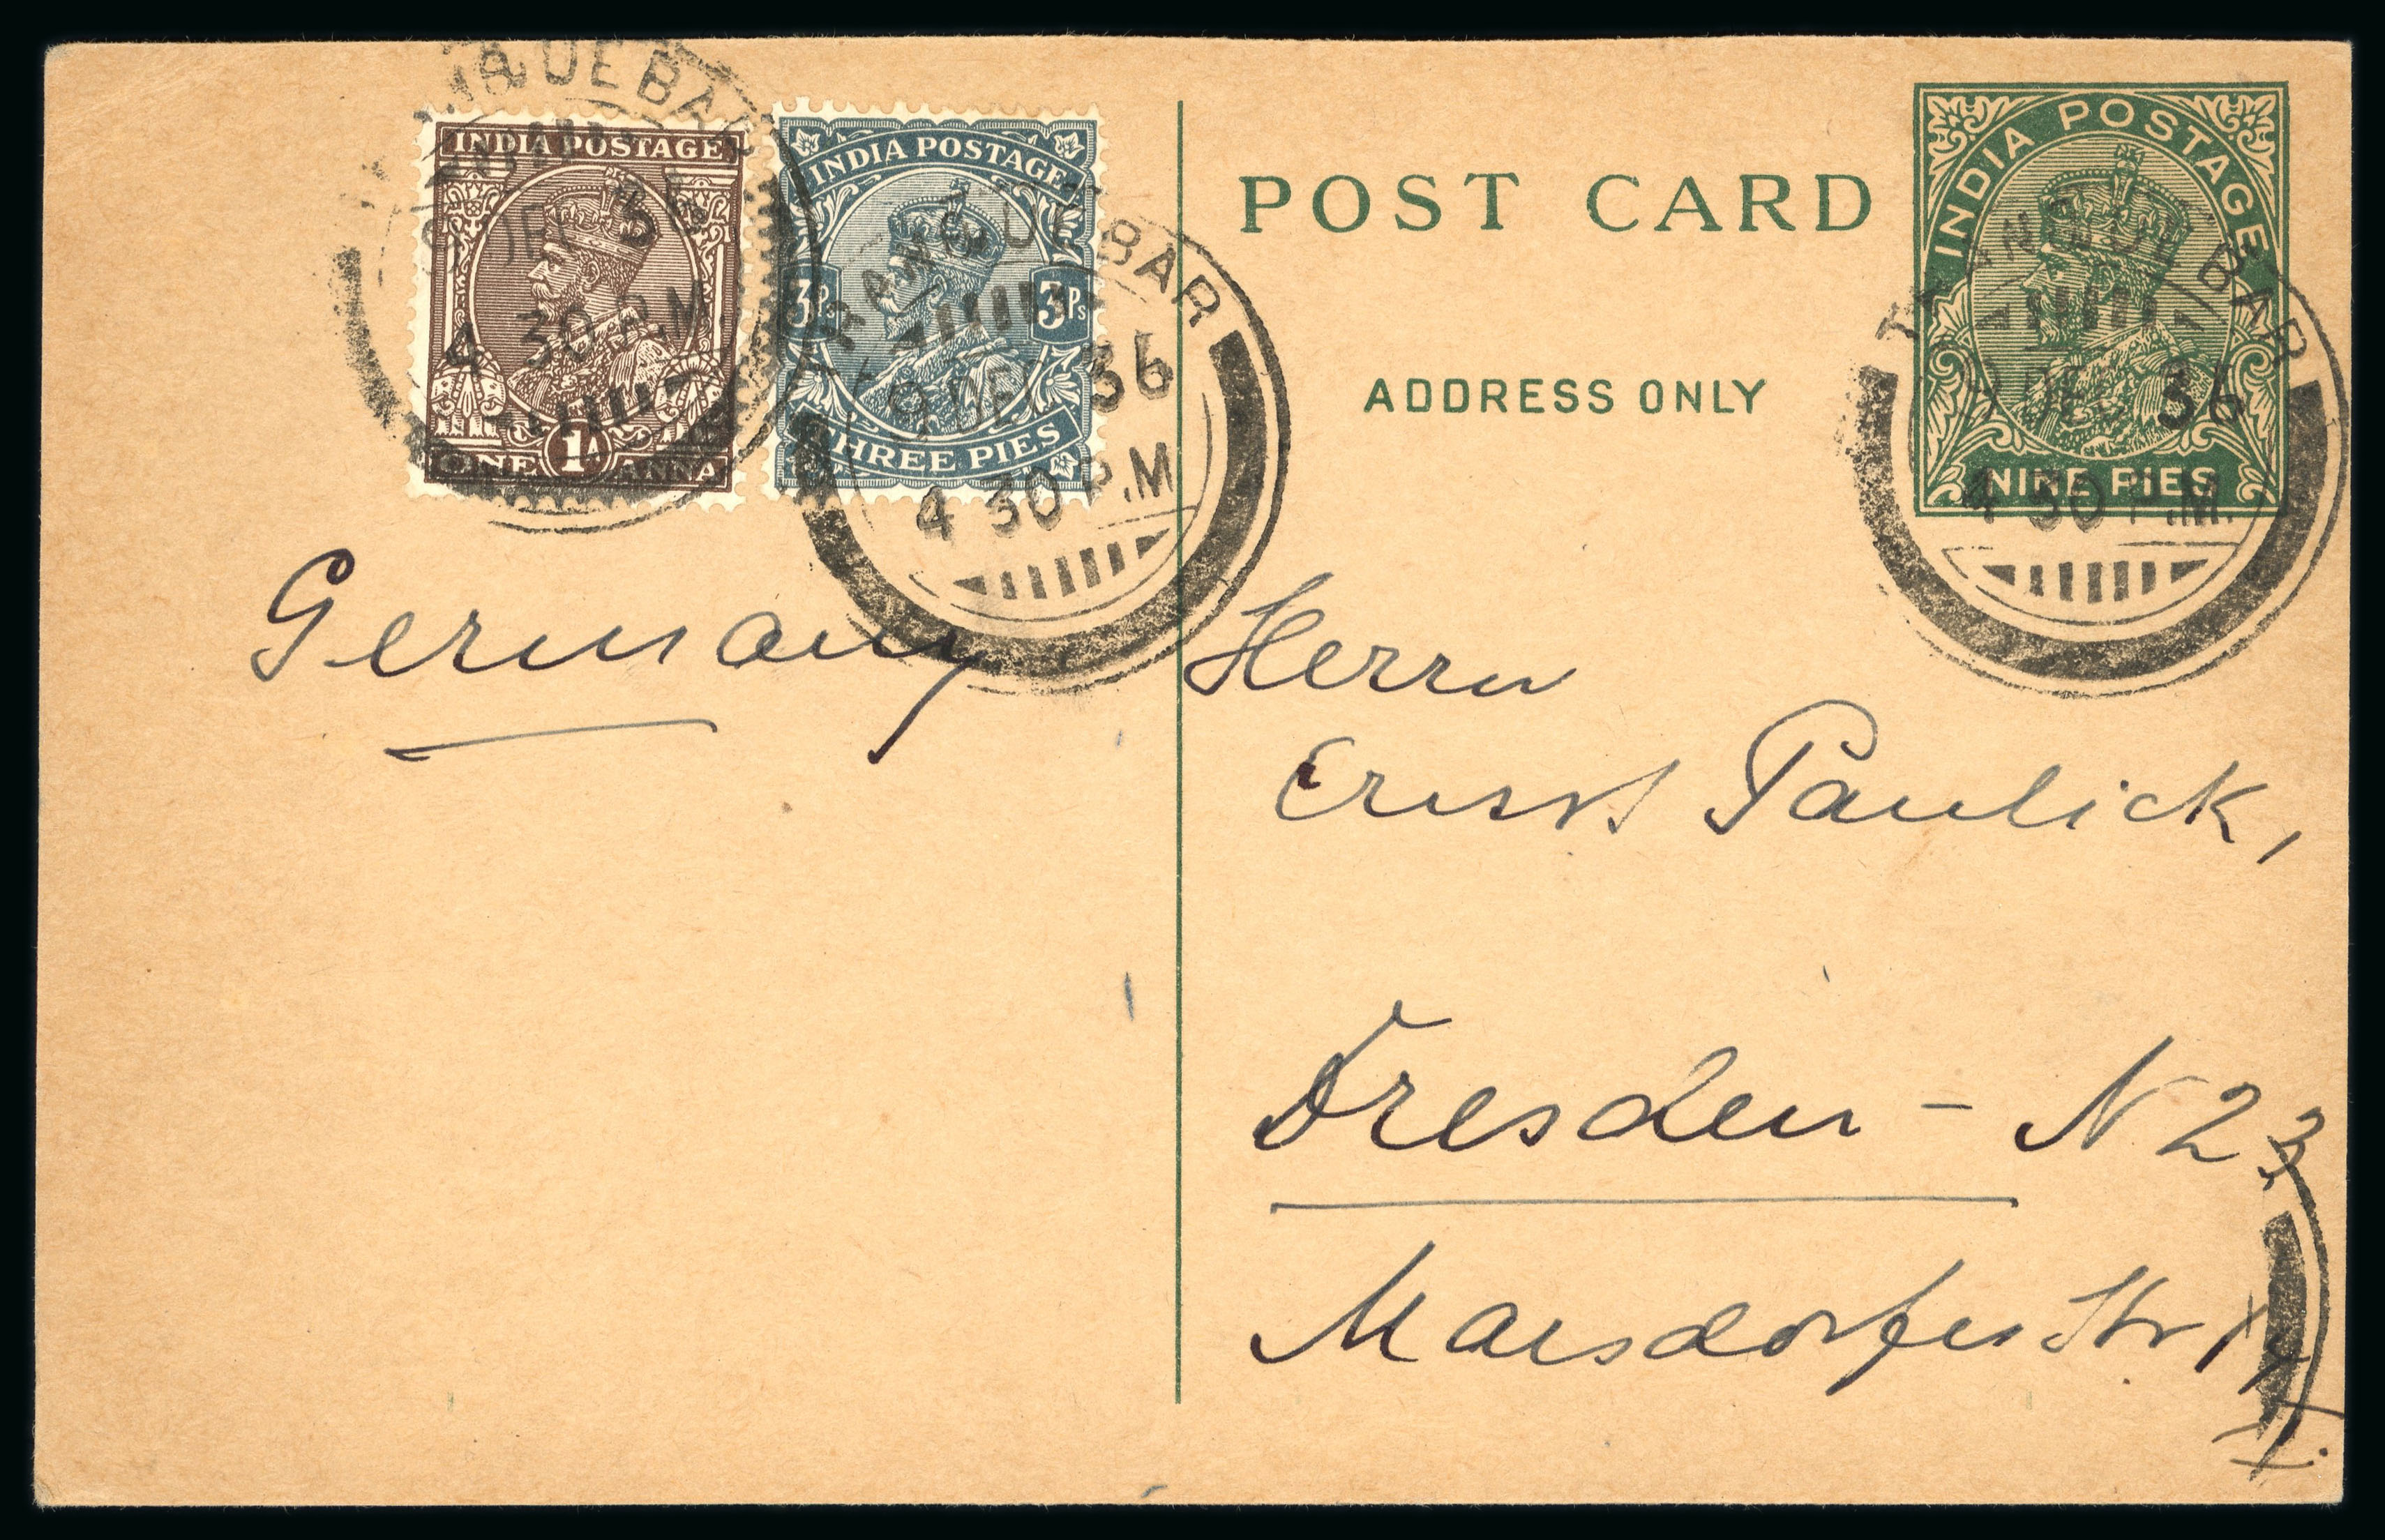 TRANQUEBAR
9 DEC 36
4 30 P.M
INDIA POSTAGE
1A
ONE ANNA
INDIA POSTAGE
3Ps 3Ps
THREE PIES
TRANQUEBAR
9 DEC 36
4 30 P.M
POST CARD
ADDRESS ONLY
INDIA POSTAGE
NINE PIES
TRANQUEBAR
9 DEC 36
4 30 P.M.
Germany
Herrn
Ernst Paulick,
Dresden - N 23
Marsdorfer Str
I.